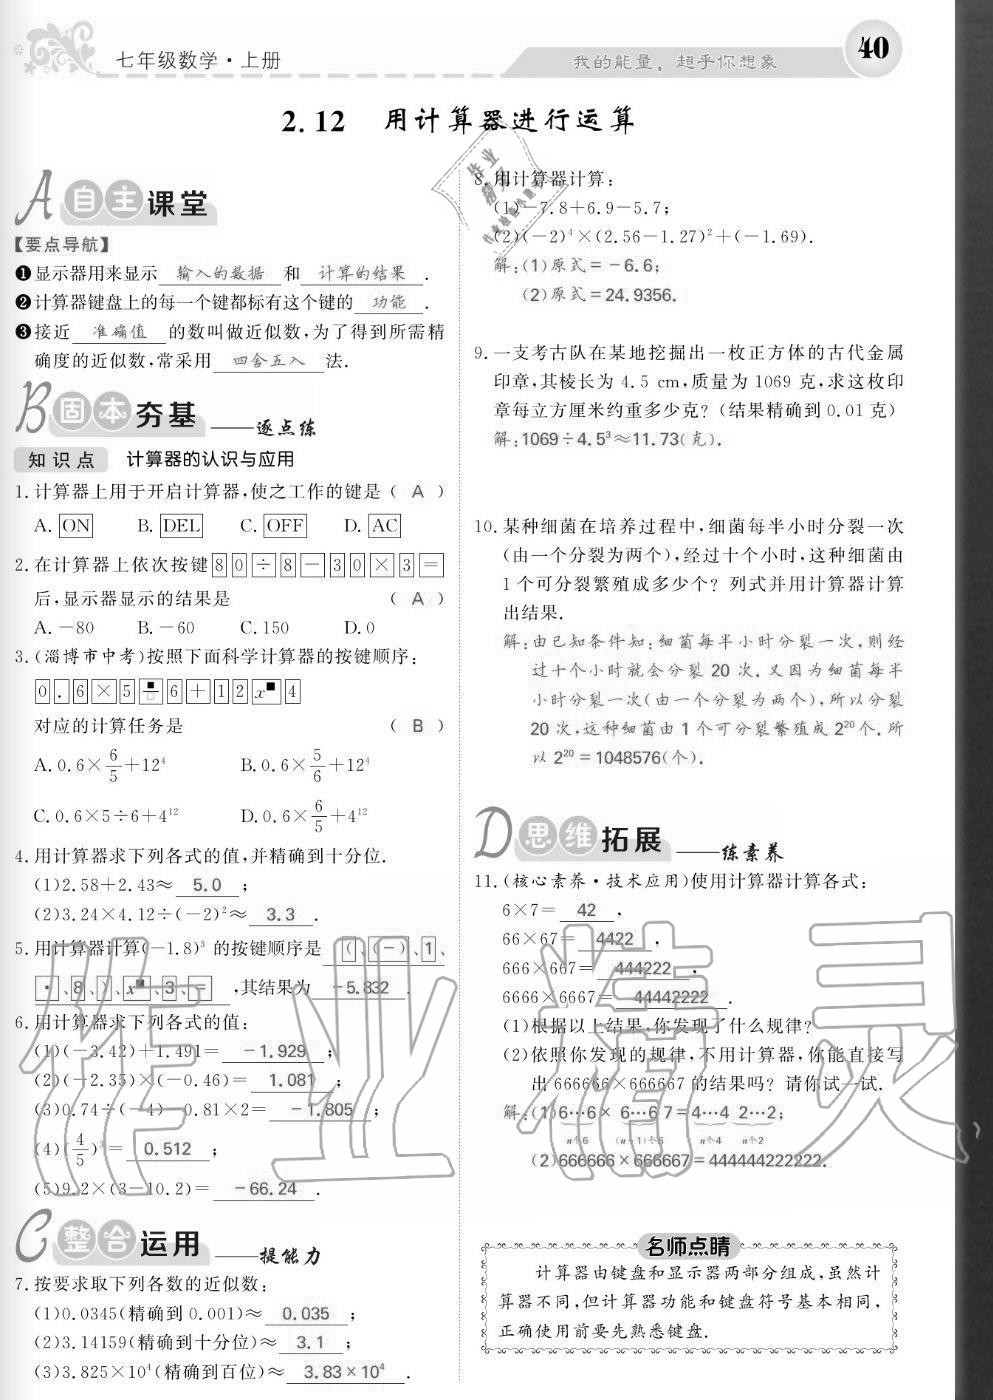 七年级数学·上册
我的能量，超乎你想象
40
2.12 用计算器进行运算
A 自主课堂
【要点导航】
❶显示器用来显示 输入的数据 和 计算的结果 .
❷计算器键盘上的每一个键都标有这个键的 功能 .
❸接近 准确值 的数叫做近似数,为了得到所需精
确度的近似数,常采用 四舍五入 法.
B 固本夯基 ——逐点练
知识点 计算器的认识与应用
1.计算器上用于开启计算器,使之工作的键是 ( A )
A. ON B. DEL C. OFF D. AC
2.在计算器上依次按键 8 0 ÷ 8 － 3 0 × 3 ＝
后,显示器显示的结果是 ( A )
A.－80 B.－60 C.150 D.0
3.(淄博市中考)按照下面科学计算器的按键顺序:
0 . 6 × 5 ■/□ 6 ＋ 1 2 x^■ 4
对应的计算任务是 ( B )
A.0.6×6/5＋12⁴ B.0.6×5/6＋12⁴
C.0.6×5÷6＋4¹² D.0.6×6/5＋4¹²
4.用计算器求下列各式的值,并精确到十分位.
(1)2.58＋2.43≈ 5.0 ;
(2)3.24×4.12÷(－2)²≈ 3.3 .
5.用计算器计算(－1.8)³ 的按键顺序是 ( 、(－)、1、
·、8、)、x^■、3、＝ ,其结果为 －5.832 .
6.用计算器求下列各式的值:
(1)(－3.42)＋1.491＝ －1.929 ;
(2)(－2.35)×(－0.46)＝ 1.081 ;
(3)0.74÷(－4)－0.81×2＝ －1.805 ;
(4)(4/5)³＝ 0.512 ;
(5)9.2×(3－10.2)＝ －66.24 .
C 整合运用 ——提能力
7.按要求取下列各数的近似数:
(1)0.0345(精确到 0.001)≈ 0.035 ;
(2)3.14159(精确到十分位)≈ 3.1 ;
(3)3.825×10⁴(精确到百位)≈ 3.83×10⁴ .
8.用计算器计算:
(1)－7.8＋6.9－5.7;
(2)(－2)⁴×(2.56－1.27)²＋(－1.69).
解:(1)原式＝－6.6;
(2)原式＝24.9356.
9.一支考古队在某地挖掘出一枚正方体的古代金属
印章,其棱长为 4.5 cm,质量为 1069 克,求这枚印
章每立方厘米约重多少克? (结果精确到 0.01 克)
解:1069÷4.5³≈11.73(克).
10.某种细菌在培养过程中,细菌每半小时分裂一次
(由一个分裂为两个),经过十个小时,这种细菌由
1 个可分裂繁殖成多少个? 列式并用计算器计算
出结果.
解:由已知条件知:细菌每半小时分裂一次,则经
过十个小时就会分裂 20 次.又因为细菌每半
小时分裂一次(由一个分裂为两个),所以分裂
20 次,这种细菌由 1 个可分裂繁殖成 2²⁰个.所
以 2²⁰＝1048576(个).
D 思维拓展 ——练素养
11.(核心素养·技术应用)使用计算器计算各式:
6×7＝ 42 ,
66×67＝ 4422 ,
666×667＝ 444222 ,
6666×6667＝ 44442222 .
(1)根据以上结果,你发现了什么规律?
(2)依照你发现的规律,不用计算器,你能直接写
出 666666×666667 的结果吗? 请你试一试.
解:(1)6…6× 6…6 7＝4…4 2…2;
n个6 (n－1)个6 n个4 n个2
(2)666666×666667＝444444222222.
名师点睛
计算器由键盘和显示器两部分组成,虽然计
算器不同,但计算器功能和键盘符号基本相同,
正确使用前要先熟悉键盘.
作业精灵